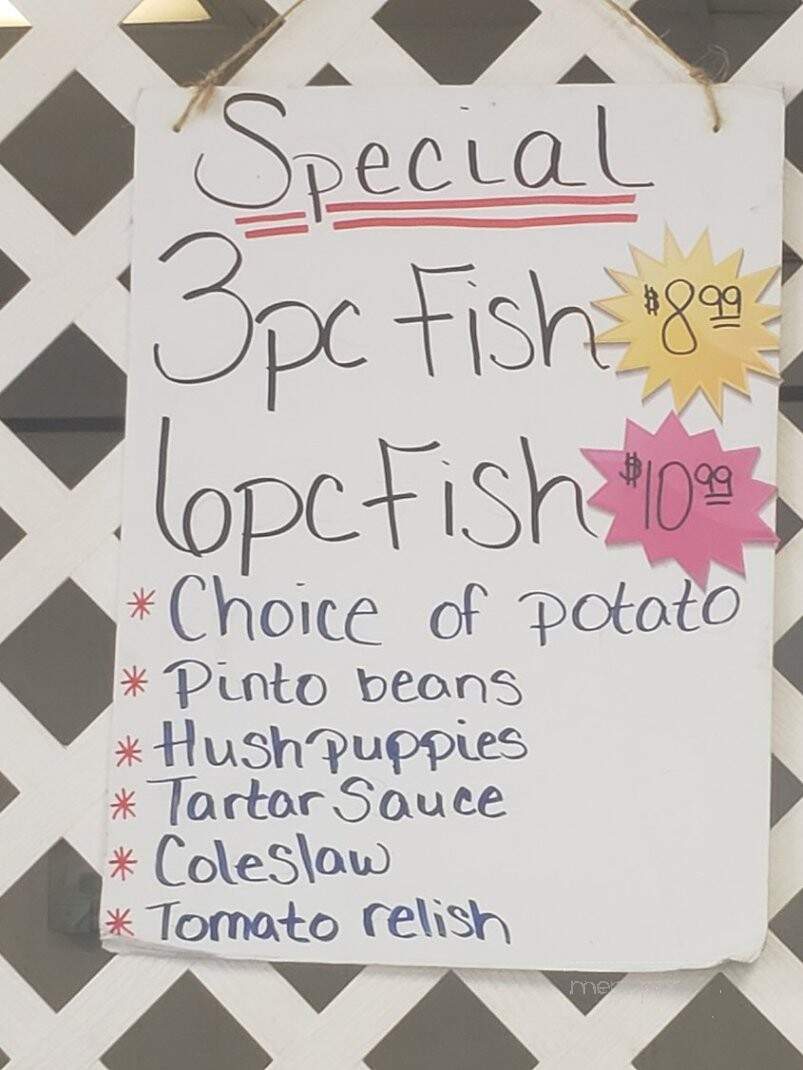 Special
3pc Fish $8.99
6pc Fish $10.99
* Choice of potato
* Pinto beans
* Hushpuppies
* Tartar Sauce
* Coleslaw
* Tomato relish